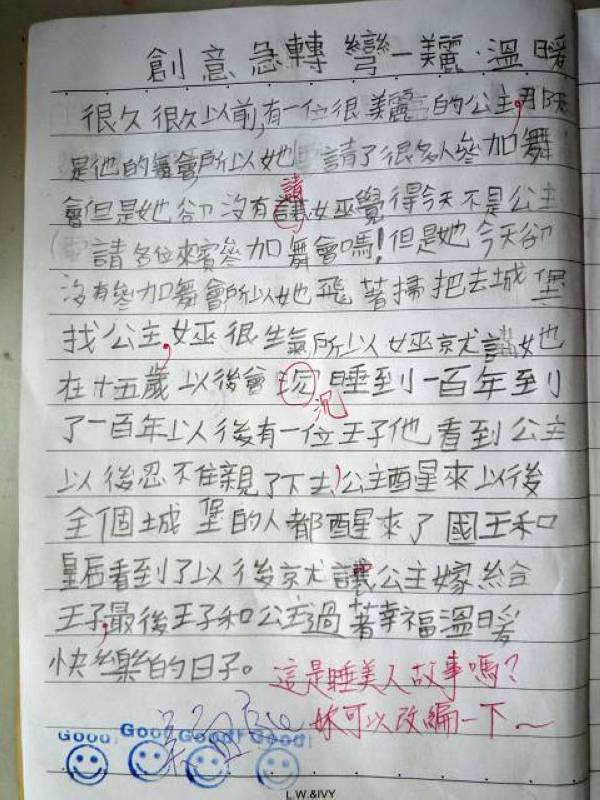 創意急轉彎—美麗、溫暖
很久很久以前,有一位很美麗的公主,那天
是他的舞會所以她 請了很多人參加舞
會但是她卻沒有讓女巫覺得今天不是公主
請
請各位來賓參加舞會嗎!但是她今天卻
沒有參加舞會所以她飛著掃把去城堡
找公主,女巫很生氣所以女巫就讓她
在十五歲以後會 睡到一百年到
沉
了一百年以後有一位王子他看到公主
以後忍不住親了下去,公主醒來以後
全個城堡的人都醒來了國王和
皇后看到了以後就讓公主嫁給
王子,最後王子和公主過著幸福溫暖
快樂的日子。
這是睡美人故事嗎?
妳可以改編一下~
Good! Good! Good! Good!
L.W.&IVY